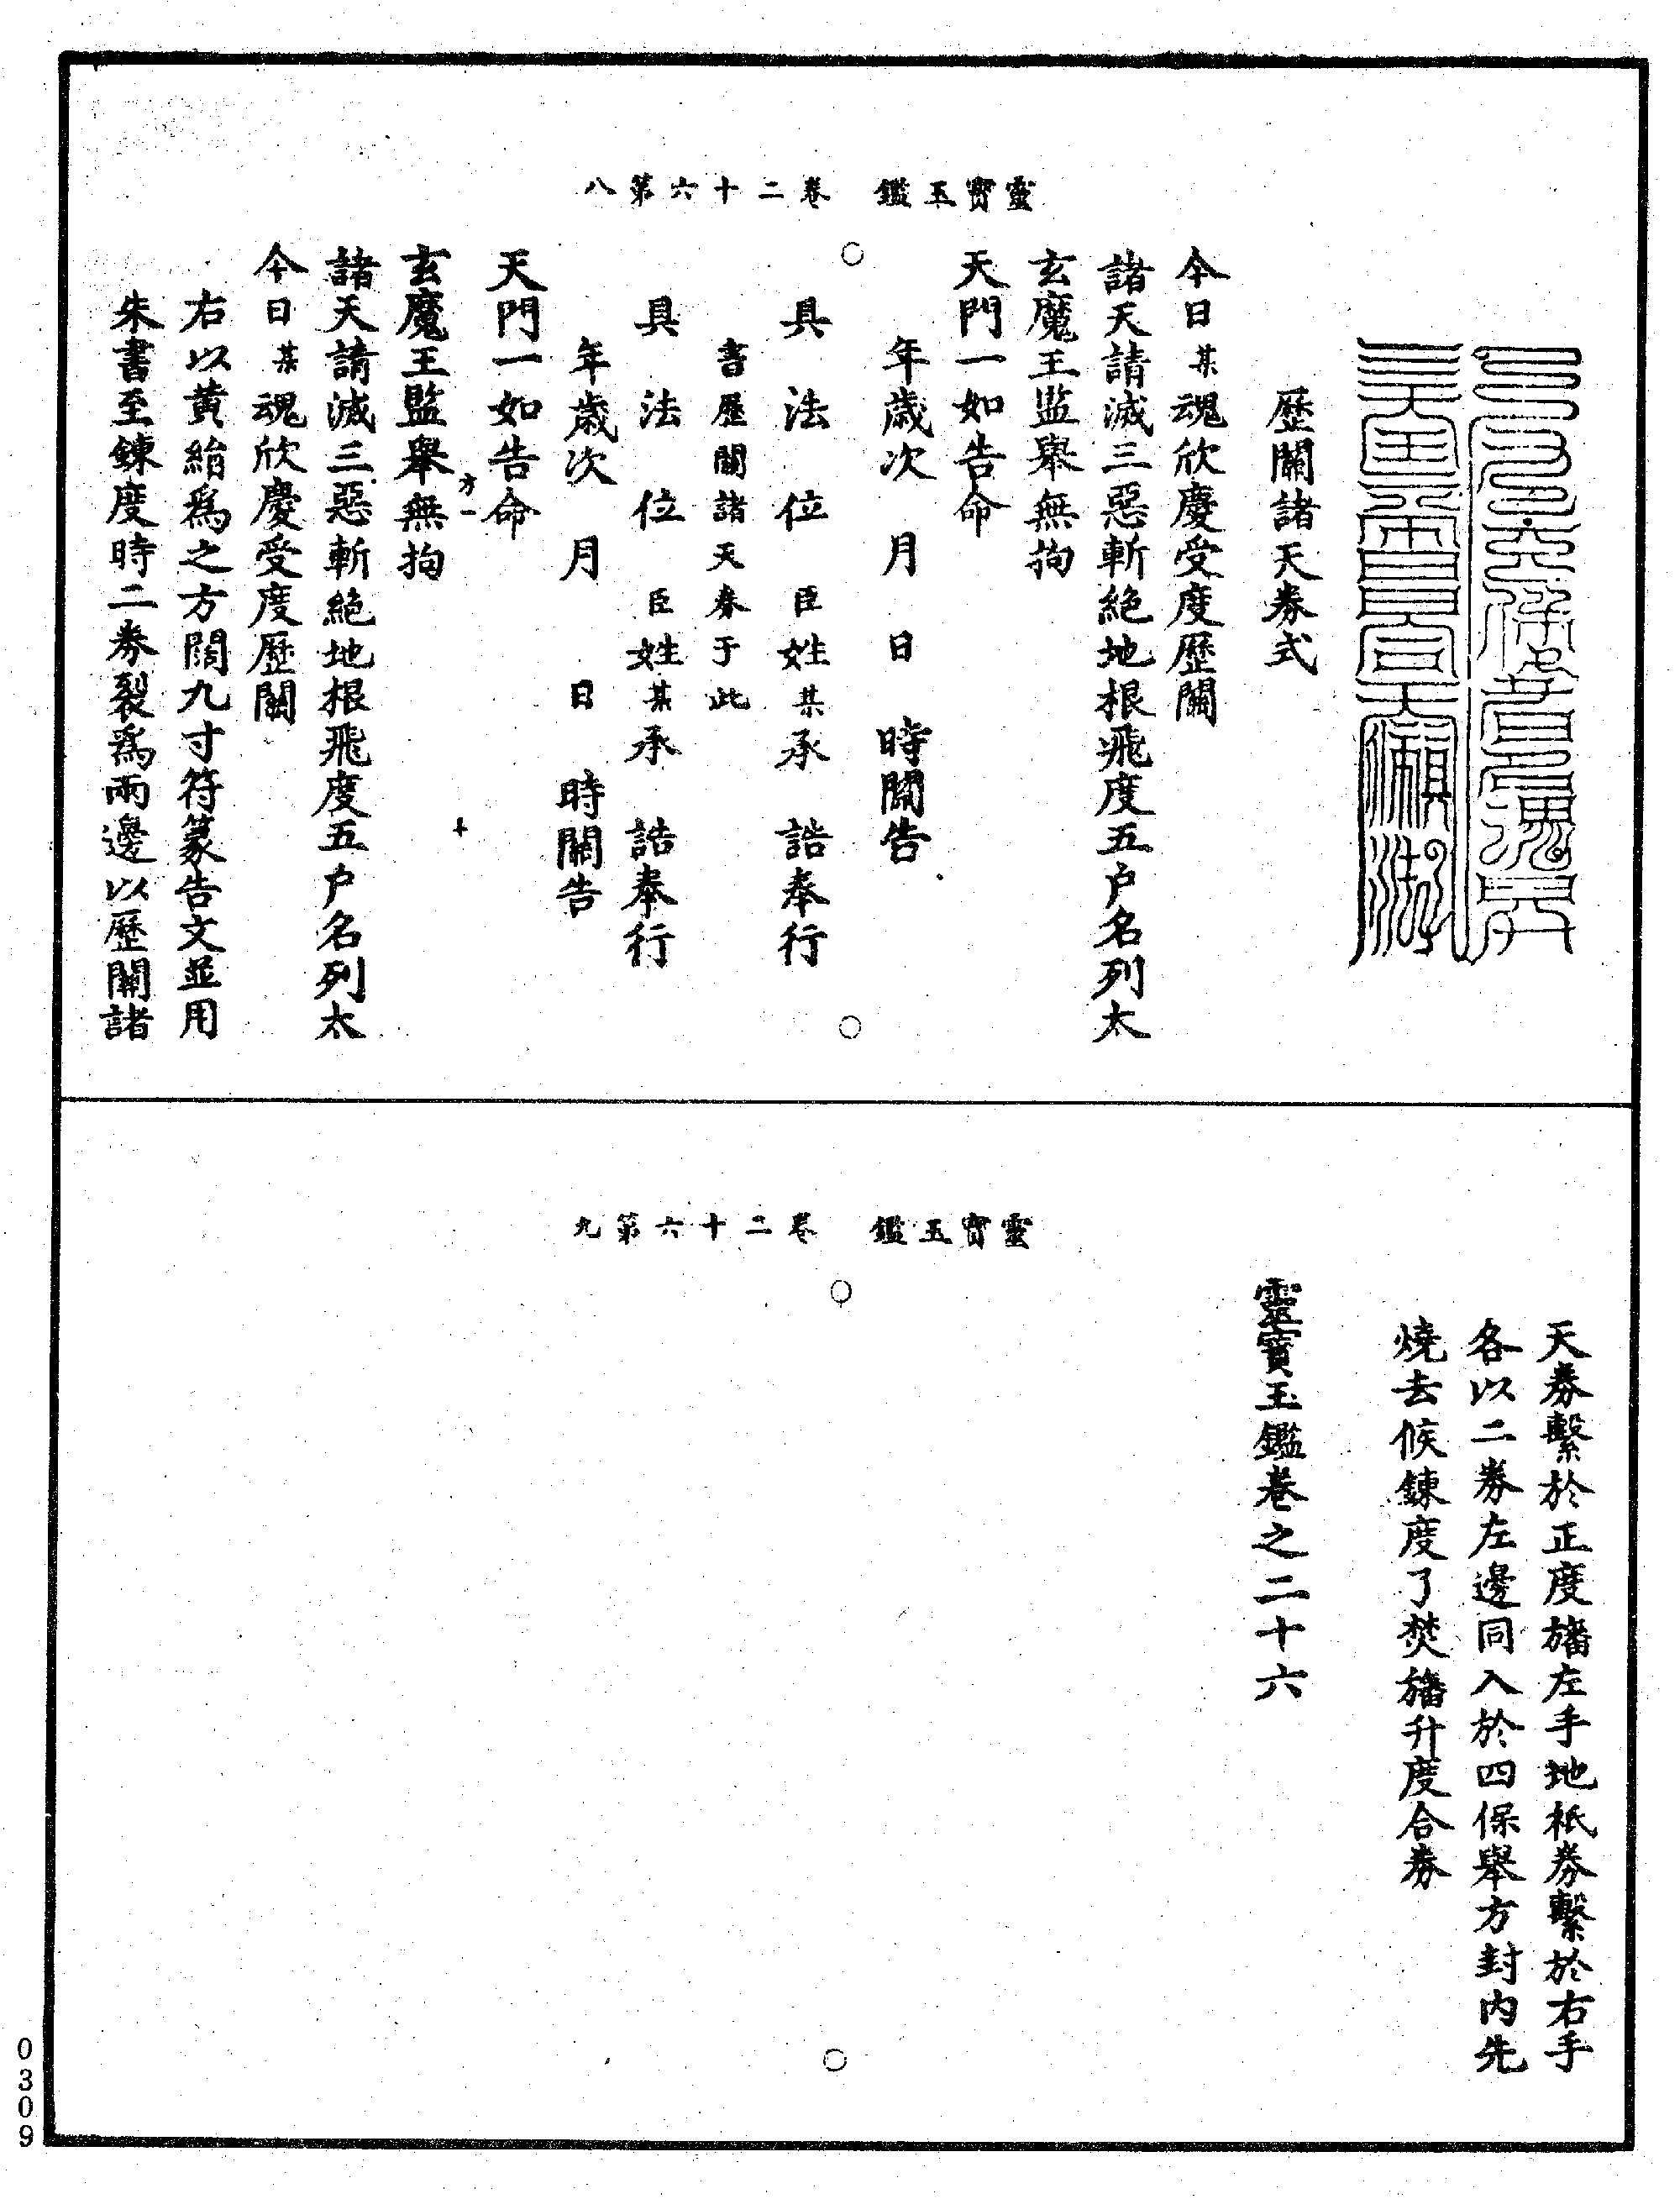 靈寶玉鑑　卷二十六第八
歷關諸天券式
今日某魂欣慶受度歷關
諸天請滅三惡斬絕地根飛度五户名列太
玄魔王監舉無拘
天門一如告命
年歲次　月　日　時關告
具　法　位　臣姓某承　誥奉行
書歷關諸天券于此
具　法　位　臣姓某承　誥奉行
年歲次　月　日　時關告
天門一如告命
方一　十
玄魔王監舉無拘
諸天請滅三惡斬絕地根飛度五户名列太
今日某魂欣慶受度歷關
右以黃絹爲之方闊九寸符篆告文並用
朱書至鍊度時二券裂爲兩邊以歷關諸
靈寶玉鑑　卷二十六第九
天券繫於正度旛左手地祇券繫於右手
各以二券左邊同入於四保舉方封內先
燒去候鍊度了焚旛升度合券
靈寶玉鑑卷之二十六
0309